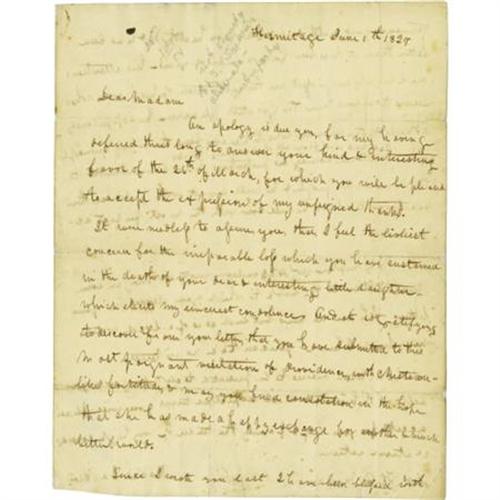 Hermitage June 1th 182
Dear Madam
An apology is due you, for my having
deferred thus long to answer your kind & interesting
favor of the 26th of March, for which you will be pleased
to accept the expression of my unfeigned thanks.
It were needless to assure you that I feel the liveliest
concern for the irreparable loss which you have sustained
in the death of your dear & interesting little daughter
which elicits my sincerest condolence And it is gratifying
to discover from your letter that you have submitted to this
most poignant visitation of providence, with christian
like fortitude, & may you find consolation in the hope
that she has made a happy exchange for another & much
better world.
Since I wrote you last I have been blessed with